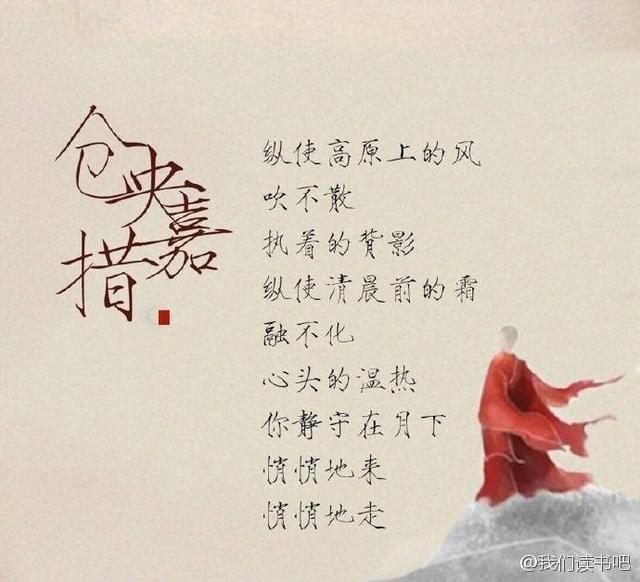 仓央嘉措
纵使高原上的风
吹不散
执着的背影
纵使清晨前的霜
融不化
心头的温热
你静守在月下
悄悄地来
悄悄地走
@我们读书吧